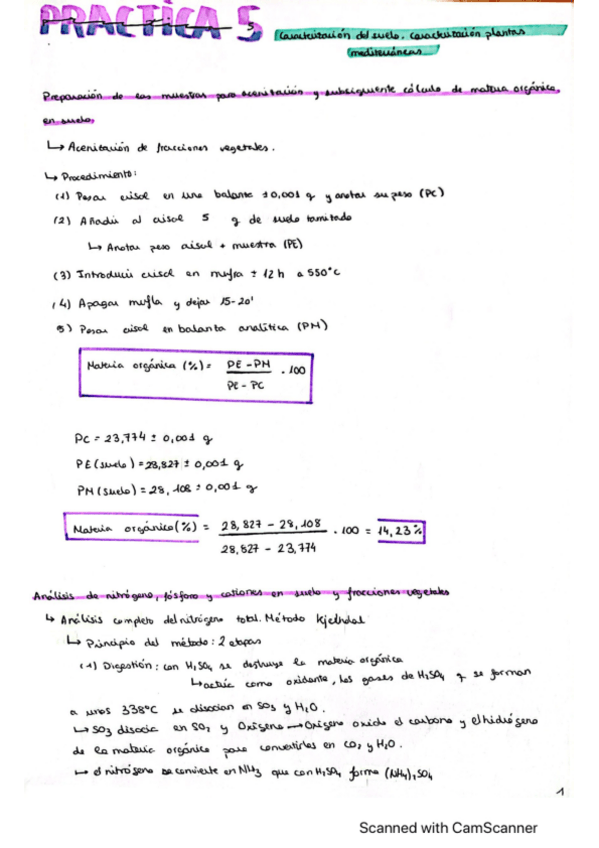 PRACTICA 5
Caracterización del suelo. Caracterización plantas
mediterráneas
Preparación de las muestras para acenización y subsiguiente cálculo de materia orgánica
en suelo.
↳ Acenización de fracciones vegetales.
↳ Procedimiento:
(1) Pesar crisol en una balanta ±0,001 g y anotar su peso (PC)
(2) Añadir al crisol 5 g de suelo tamitado
↳ Anotar peso crisol + muestra (PE)
(3) Introducir crisol en mufla ± 12 h a 550°C
(4) Apagar mufla y dejar 15-20'
5) Pesar crisol en balanta analítica (PM)
Materia orgánica (%) = PE - PM / PE - PC . 100
PC = 23,774 ± 0,001 g
PE (suelo) = 23,827 ± 0,001 g
PM (suelo) = 28,108 ± 0,001 g
Materia orgánico (%) = 28,827 - 28,108 / 28,827 - 23,774 . 100 = 14,23%
Análisis de nitrógeno, fósforo y cationes en suelo y fracciones vegetales
↳ Análisis completo del nitrógeno total. Método Kjeldhal
↳ Principio del método: 2 etapas
(1) Digestión: con H₂SO₄ se destruye la materia orgánica
↳ actúa como oxidante, los gases de H₂SO₄ q se forman
a unos 338°C se disocian en SO₃ y H₂O.
↳ SO₃ disocia en SO₂ y Oxígeno → Oxígeno oxida el carbono y el hidrógeno
de la materia orgánica para convertirlos en CO₂ y H₂O.
↳ el nitrógeno se convierte en NH₃ que con H₂SO₄ forma (NH₄)₂SO₄
1
Scanned with CamScanner